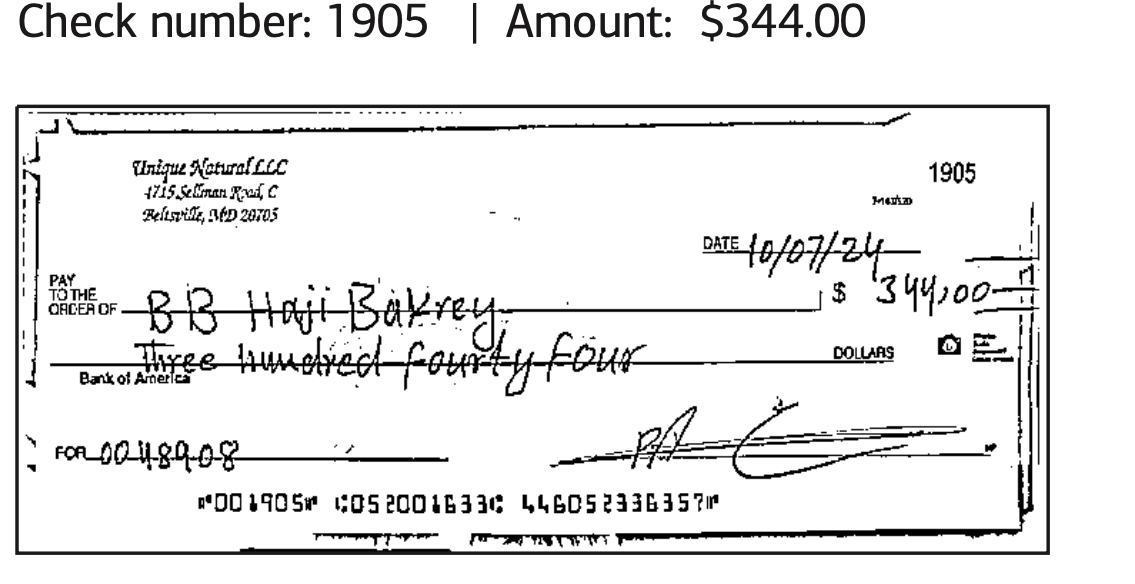 Check number: 1905 | Amount: $344.00
Unique Natural LLC
4715 Sellman Road, C
Beltsville, MD 20705
1905
DATE 10/07/24
PAY
TO THE
ORDER OF BB Haji Bakrey
$ 344,00
Three hundred fourty four DOLLARS
Bank of America
FOR 0048908
⑈001905⑈ ⑆052001633⑆ 446052336357⑈